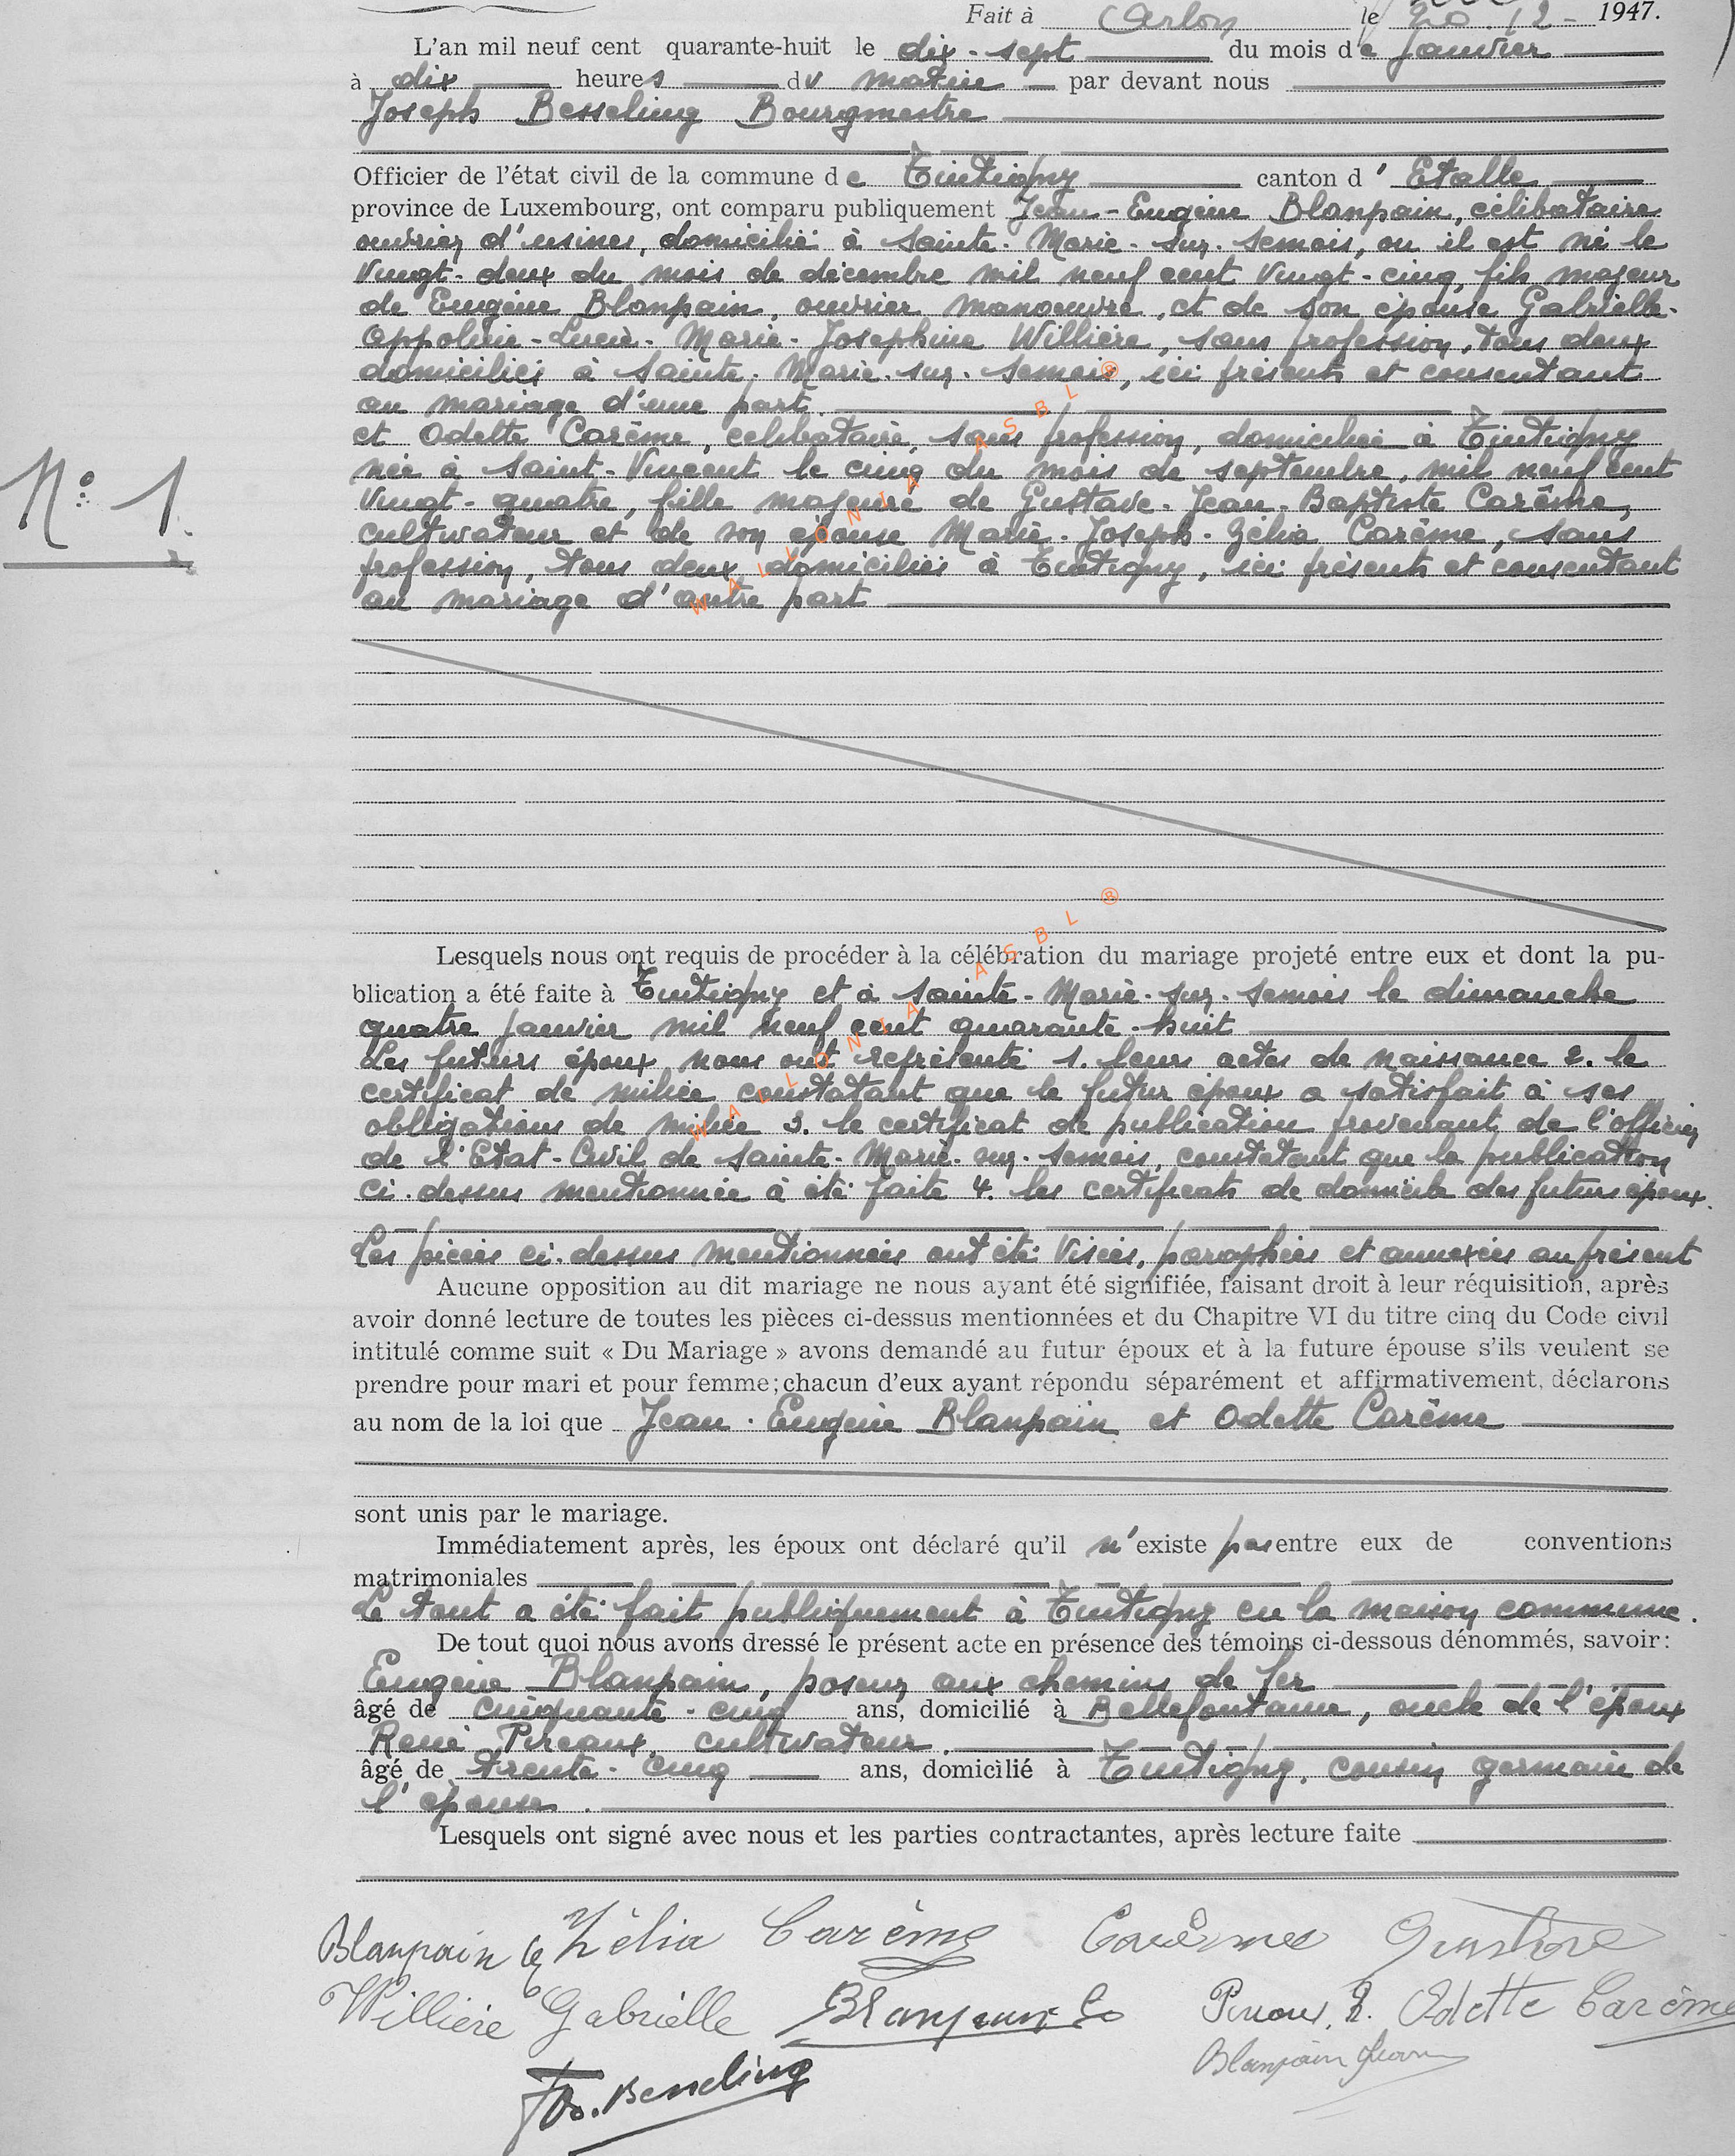 Fait à Arlon le 20.12- 1947.
L'an mil neuf cent quarante-huit le dix-sept du mois de Janvier
à dix heures du matin par devant nous
Joseph Besseling Bourgmestre
Officier de l'état civil de la commune de Tintigny canton d'Etalle
province de Luxembourg, ont comparu publiquement Jean-Eugène Blanpain, célibataire
ouvrier d'usines, domicilié à Sainte-Marie-sur-Semois, ou il est né le
Vingt-deux du mois de décembre mil neuf cent Vingt-cinq, fils majeur
de Eugène Blanpain, ouvrier manoeuvre, et de son épouse Gabrielle-
Appoline-Lucie-Marie-Josephine Willière, sans profession, tous deux
domiciliés à Sainte-Marie-sur-Semois, ici présents et consentant
au mariage d'une part.
et Odette Carême, célibataire, sans profession, domiciliée à Tintigny
N° 1.
née à Saint-Vincent le cinq du mois de septembre, mil neuf cent
Vingt-quatre, fille majeure de Gustave-Jean-Baptiste Carême,
cultivateur et de son épouse Marie-Joseph-Zélia Carême, sans
profession, tous deux domiciliés à Tintigny, ici présents et consentant
au mariage d'autre part
WALLONIA ASBL ®
Lesquels nous ont requis de procéder à la célébration du mariage projeté entre eux et dont la pu-
blication a été faite à Tintigny et à Sainte-Marie-sur-Semois le dimanche
quatre janvier mil neuf cent quarante-huit
Les futurs époux nous ont représenté 1. leurs actes de naissance 2. le
certificat de milice constatant que le futur époux a satisfait à ses
obligations de milice 3. le certificat de publication provenant de l'officier
de l'Etat-Civil de Sainte-Marie-sur-Semois, constatant que la publication
ci-dessus mentionnée à été faite 4. les certificats de domicile des futurs époux.
Les pièces ci-dessus mentionnées ont été Visées, paraphées et annexées au présent
WALLONIA ASBL ®
Aucune opposition au dit mariage ne nous ayant été signifiée, faisant droit à leur réquisition, après
avoir donné lecture de toutes les pièces ci-dessus mentionnées et du Chapitre VI du titre cinq du Code civil
intitulé comme suit « Du Mariage » avons demandé au futur époux et à la future épouse s'ils veulent se
prendre pour mari et pour femme; chacun d'eux ayant répondu séparément et affirmativement, déclarons
au nom de la loi que Jean-Eugène Blanpain et Odette Carême
sont unis par le mariage.
Immédiatement après, les époux ont déclaré qu'il n'existe pas entre eux de conventions
matrimoniales
Le tout a été fait publiquement à Tintigny en la maison commune.
De tout quoi nous avons dressé le présent acte en présence des témoins ci-dessous dénommés, savoir:
Eugène Blanpain, poseur aux chemins de fer
âgé de cinquante-cinq ans, domicilié à Bellefontaine, oncle de l'époux
René Pireaux, cultivateur.
âgé de trente-cinq ans, domicilié à Tintigny, cousin germain de
l'épouse.
Lesquels ont signé avec nous et les parties contractantes, après lecture faite
Blanpain E Zélia Carême Carême Gustave
Willière Gabrielle Blanpain E Odette Carême
Blanpain Jean
Jos. Besseling